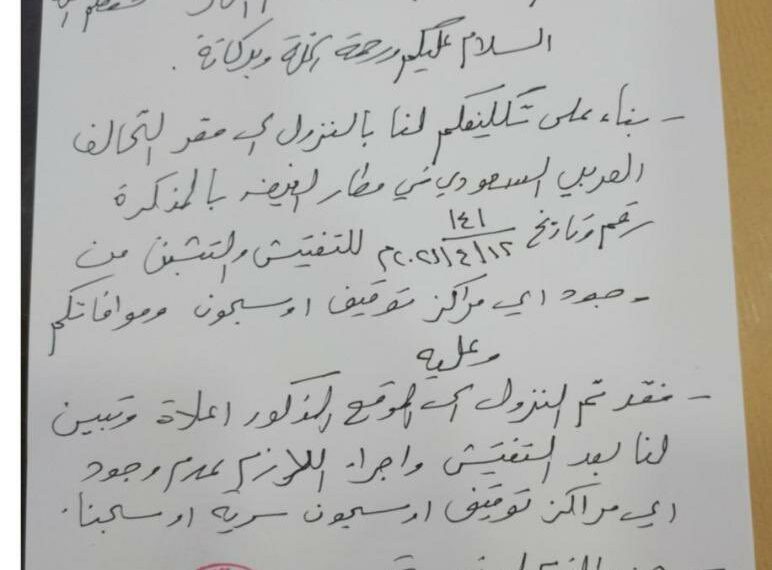 السلام عليكم ورحمة الله وبركاتة .
- بناء على تكليفكم لنا بالنزول الى مقر التحالف
العربي السعودي في مطار الغيضه بالمذكرة
رقم وتاريخ ١٤١ ٢٠٢١/٤/١٢م للتفتيش والتثبت من
وجود اي مراكز توقيف او سجون وموافاتكم
وعليه
- فقد تم النزول الى الموقع المذكور اعلاة وتبين
لنا بعد التفتيش واجراء اللازم عدم وجود
اي مراكز توقيف او سجون سرية او سجناء .